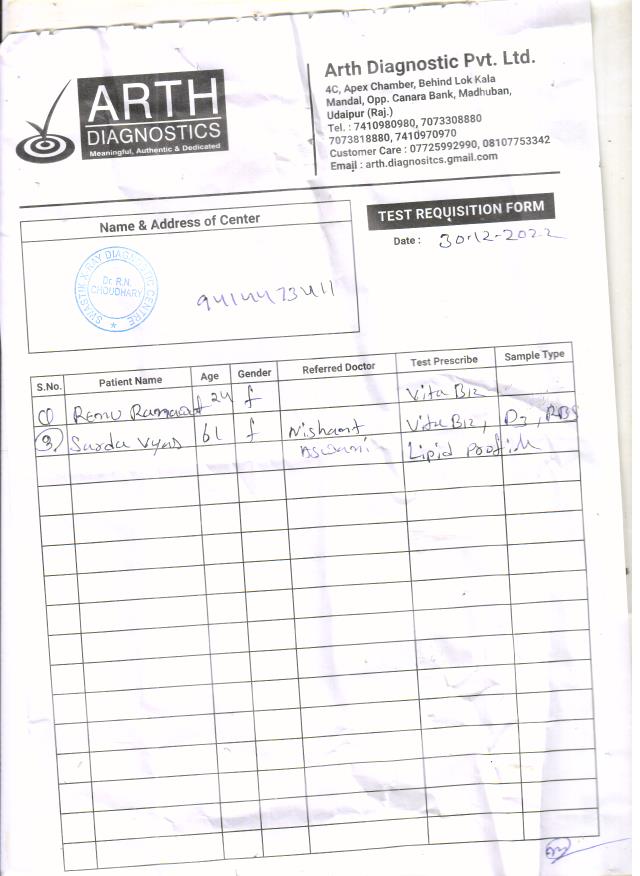 ARTH
DIAGNOSTICS
Meaningful, Authentic & Dedicated
Arth Diagnostic Pvt. Ltd.
4C, Apex Chamber, Behind Lok Kala
Mandal, Opp. Canara Bank, Madhuban,
Udaipur (Raj.)
Tel. : 7410980980, 7073308880
7073818880, 7410970970
Customer Care : 07725992990, 08107753342
Email : arth.diagnositcs.gmail.com
Name & Address of Center
SWASTIK X-RAY DIAGNOSTIC CENTRE
Dr. R.N.
CHOUDHARY
9414473411
TEST REQUISITION FORM
Date : 30-12-2022
S.No. Patient Name Age Gender Referred Doctor Test Prescribe Sample Type
Renu 24 f Vita B12
Sarda Vyas 61 f Nishant Vita B12, D3, RBS
Aswani Lipid Profile